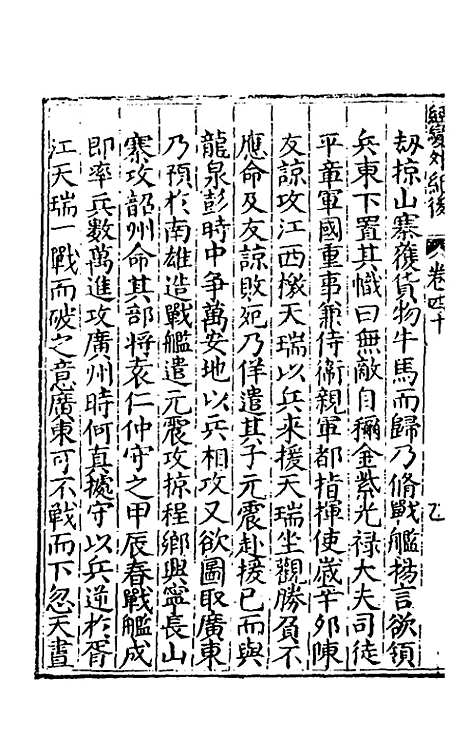 劫掠山寨獲貨物牛馬而歸乃脩戰艦揚言欲領
兵東下置其幟曰無敵自稱金紫光禄大夫司徒
平章軍國重事兼侍衛親軍都指揮使歲辛卯陳
友諒攻江西檄天瑞以兵來援天瑞坐觀勝負不
應命及友諒敗死乃佯遣其子元震赴援已而與
龍泉彭時中争萬安地以兵相攻又欲圖取廣東
乃預於南雄造戰艦遣元震攻掠程鄉興寧長山
寨攻韶州命其部將袁仁仲守之甲辰春戰艦成
即率兵數萬進攻廣州時何真據守以兵逆於胥
江天瑞一戰而破之意廣東可不戰而下忽天晝
卷四十